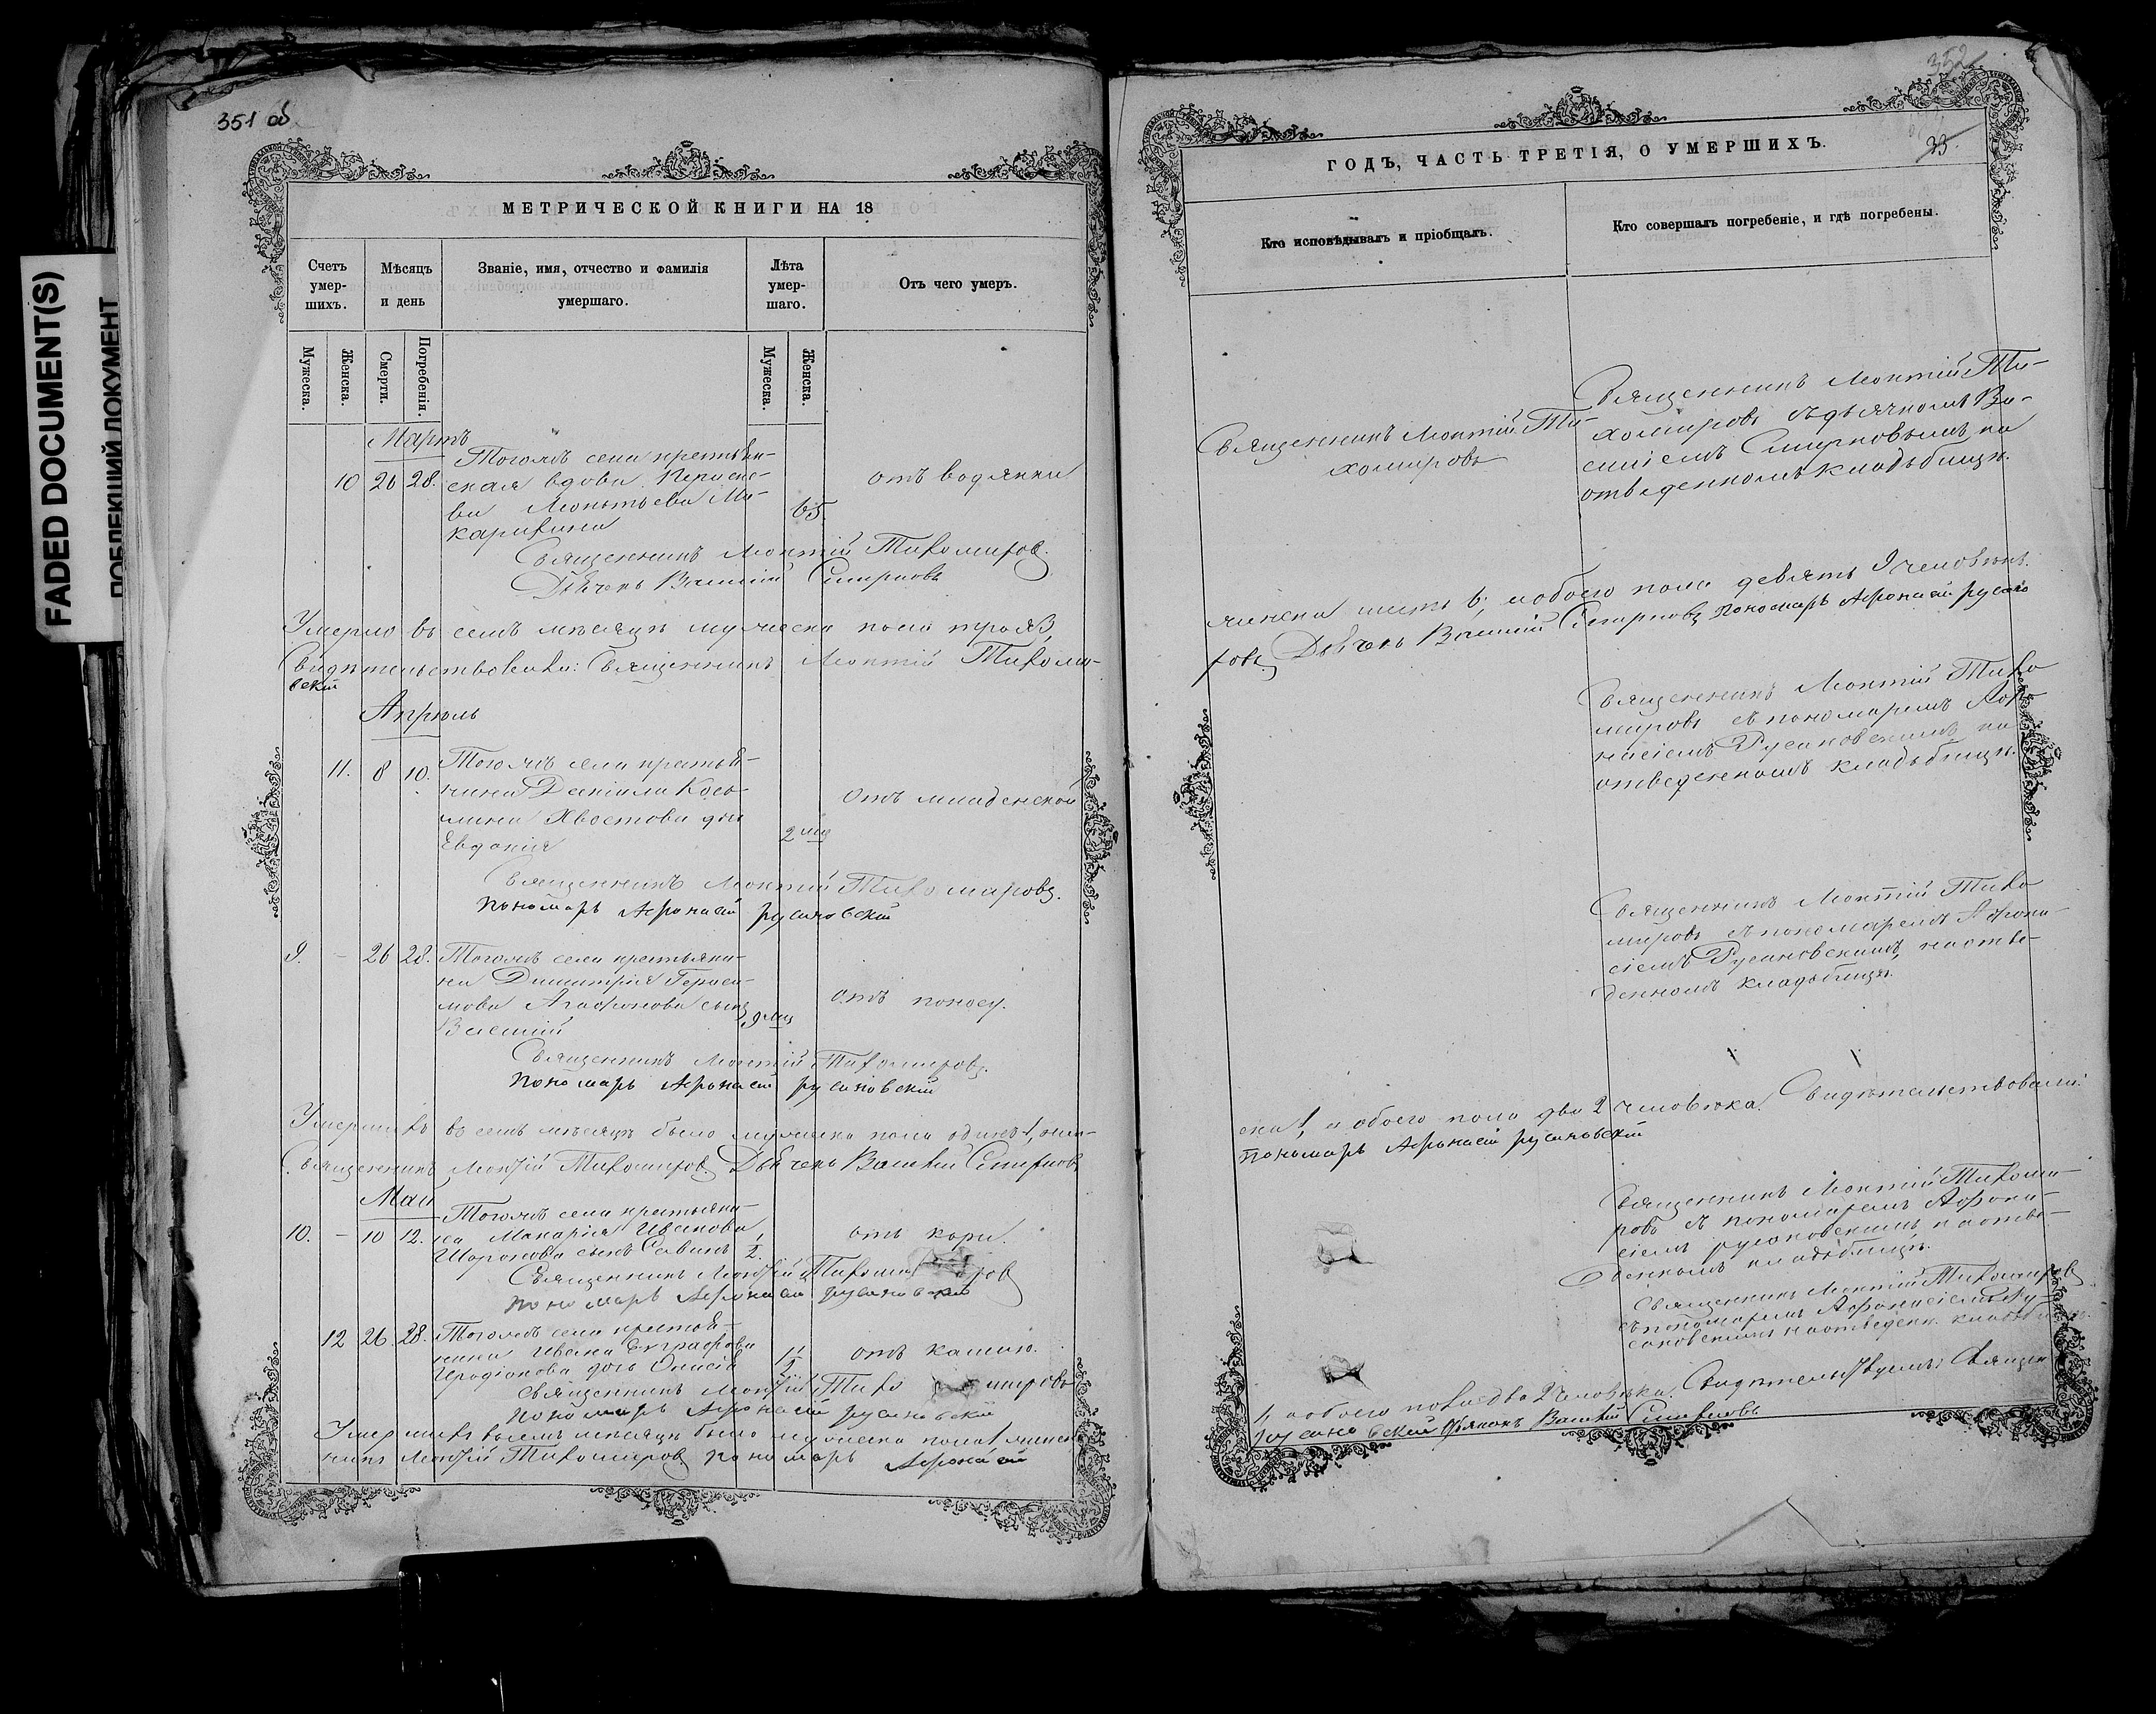 FADED DOCUMENT(S)
ПОБЛЕКШИЙ ДОКУМЕНТ
351 об
МЕТРИЧЕСКОЙ КНИГИ НА 18
Счетъ умер-шихъ.
Мѣсяцъ и день
Званіе, имя, отчество и фамилія умершаго.
Лѣта умер-шаго.
Отъ чего умеръ.
Мужеска.
Женска.
Смерти.
Погребенія.
Мужеска.
Женска.
Мартъ
Тогожъ села крестьян-
10 26 28. ская вдова
ва Леонтьева Ма- 65. отъ водянки
карихина
Священникъ Леонтій Тихомировъ.
Дьячекъ Василій Смирновъ
Умерло въ семъ мѣсяцѣ мужеска пола трое 3,
Свидѣтельствовали: Священникъ Леонтій Тихоми-
вскій
Апрѣль
11. 8 10. Тогожъ села крестья-
нина Даніила Козь-
мина Хвостова дочь 2 мѣс отъ младенской
Евдокія
Священникъ Леонтій Тихомировъ.
Пономарь Афонасій русановскій
9. - 26 28. Тогожъ села крестьяни-
на Димитрія Гераси-
мова Агафонова сынъ 9 мѣс отъ поносу.
Василій
Священникъ Леонтій Тихомировъ.
Пономарь Афонасій русановскій
Умершихъ въ семъ мѣсяцѣ было мужеска пола одинъ 1, жен-
Священникъ Леонтій Тихомировъ. Дьячекъ Василій Смирновъ
Май
Тогожъ села крестьяни-
10. - 10 12. на Макарія Иванова 1/2. отъ кори.
Шаронова сынъ Савинъ
Священникъ Леонтій Тихомировъ
Пономарь Афонасій русановскій
12 26. 28. Тогожъ села крестья-
нина Ивана Евграфова 1 1/2 отъ кашлю.
Иродіонова дочь Онисія
Священникъ Леонтій Тихомировъ
Пономарь Афонасій русановскій
Умершихъ въ семъ мѣсяцѣ было мужеска пола 1, женска
никъ Леонтій Тихомировъ пономарь Афонасій
352
33
ГОДЪ, ЧАСТЬ ТРЕТІЯ, О УМЕРШИХЪ.
Кто исповѣдывалъ и пріобщалъ.
Кто совершалъ погребеніе, и гдѣ погребены.
Священникъ Леонтій Ти-
хомировъ
Священникъ Леонтій Ти-
хомировъ съ дьячкомъ Ва-
силіемъ Смирновымъ, на
отведенномъ кладьбищѣ.
женска шесть 6; и обоего пола девять 9 человѣкъ.
ровъ. Дьячекъ Василій Смирновъ Пономарь Афонасій русано
Священникъ Леонтій Тихо
мировъ съ пономаремъ Афо-
насіемъ Русановскимъ на
отведенномъ кладьбищѣ.
Священникъ Леонтій Тихо
мировъ съ пономаремъ Афона-
сіемъ Русановскимъ, на отве-
денномъ кладьбищѣ.
ска 1, и обоего пола два 2 человѣка. Свидѣтельствовали:
Пономарь Афонасій русановскій
Священникъ Леонтій Тихоми-
ровъ съ пономаремъ Афона-
сіемъ русановскимъ на отве-
денномъ кладьбищѣ.
Священникъ Леонтій Тихомировъ
съ пономаремъ Афонасіемъ Ру-
сановскимъ на отведен. кладьбищѣ.
1, и обоего пола два 2 человѣка. Свидѣтельствуемъ: Священ
русановскій Дьяконъ Василій Смирновъ